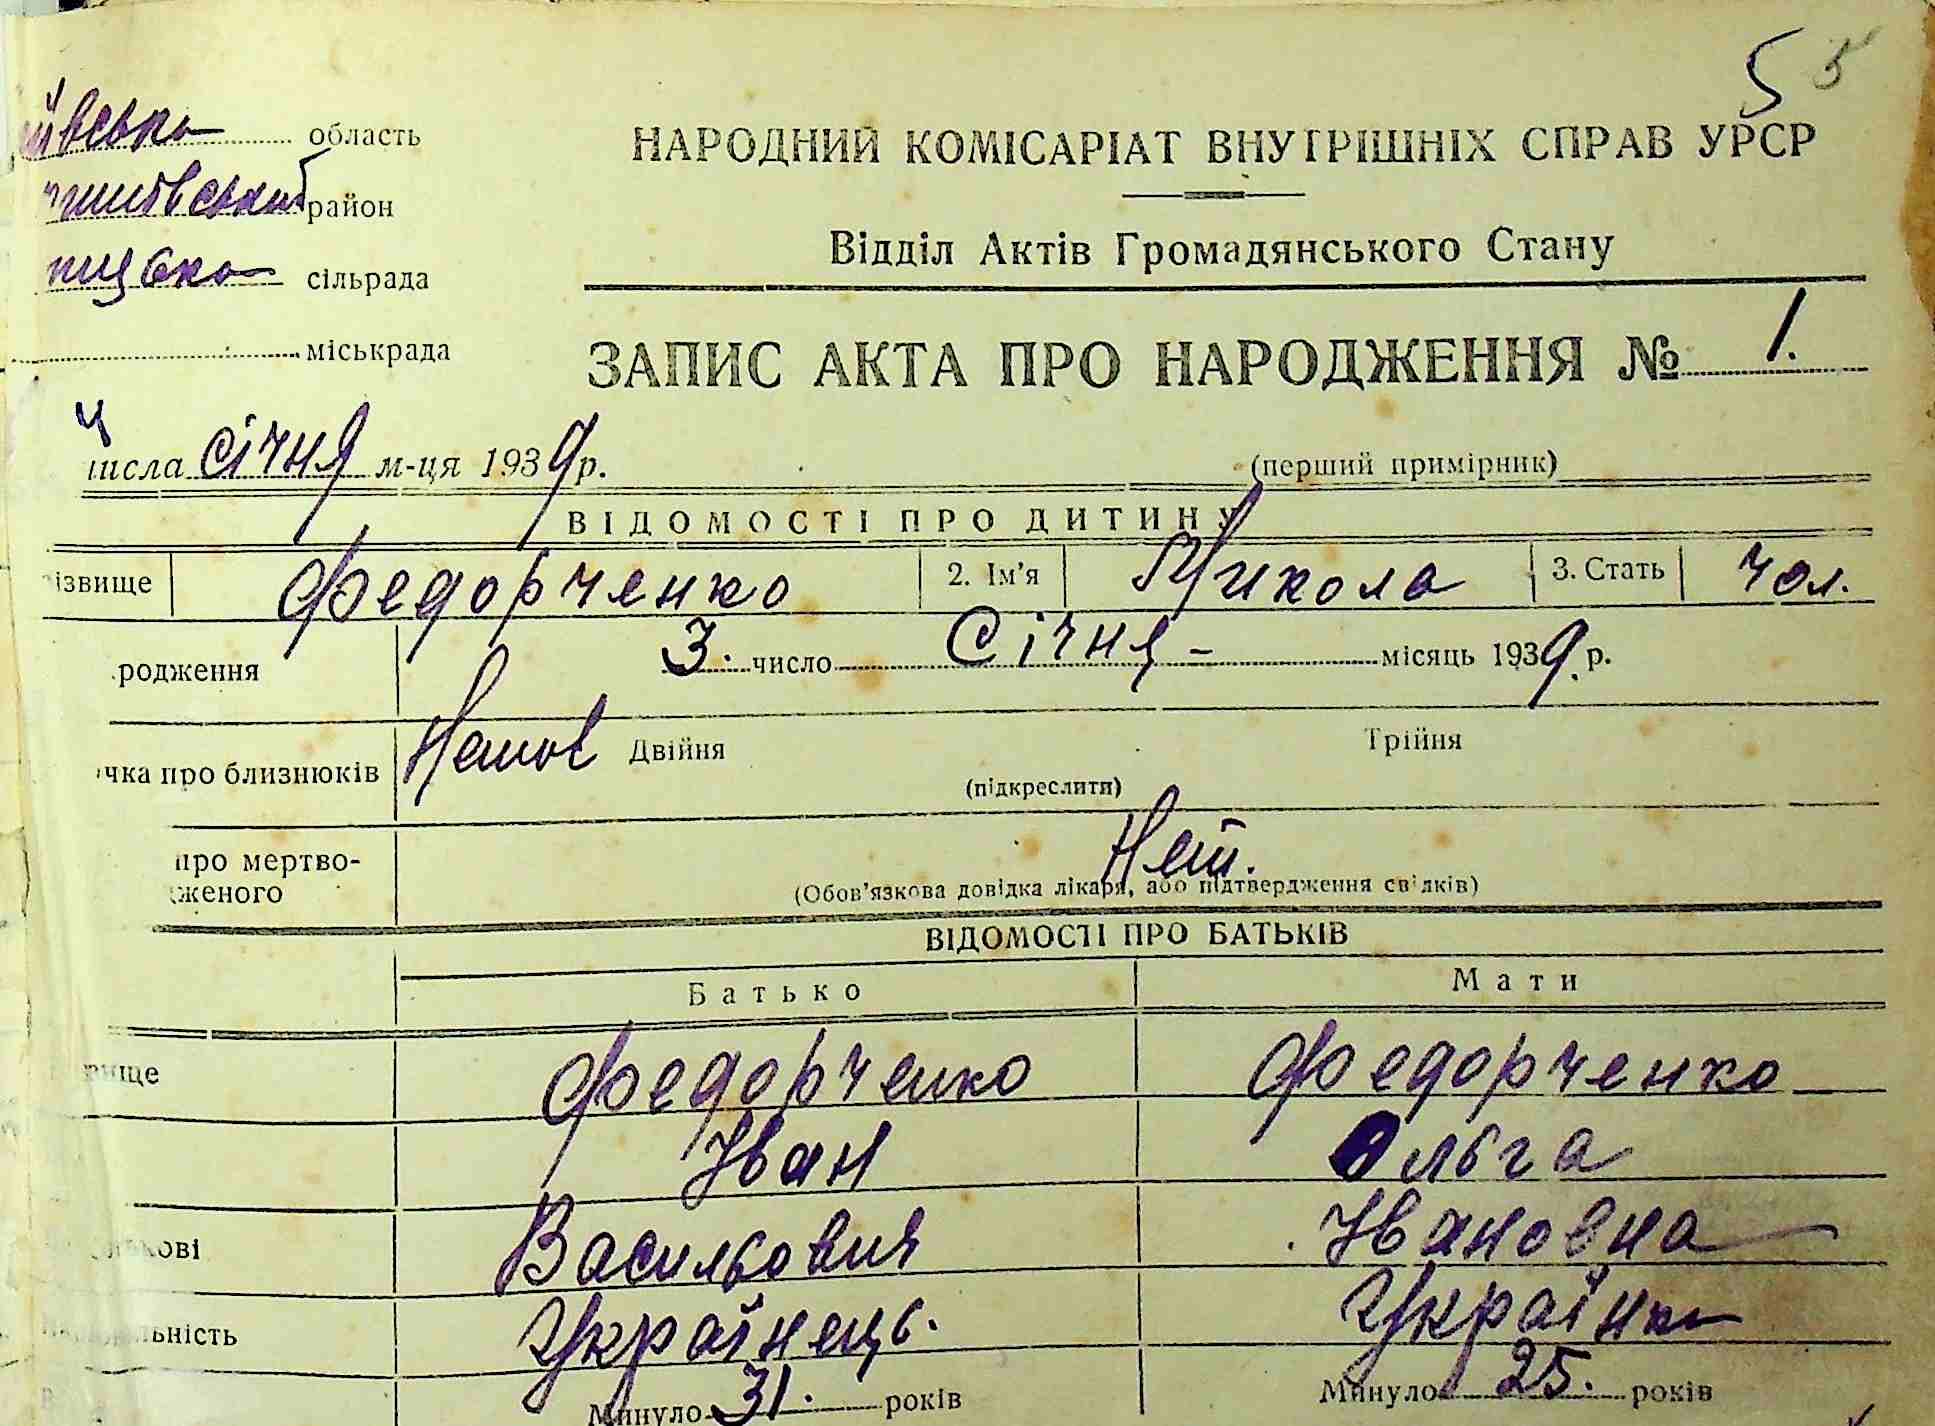 5 5
ївська область
НАРОДНИЙ КОМІСАРІАТ ВНУТРІШНІХ СПРАВ УРСР
район
Відділ Актів Громадянського Стану
сільрада
міськрада
ЗАПИС АКТА ПРО НАРОДЖЕННЯ № 1.
4
числа січня м-ця 1939 р.
(перший примірник)
ВІДОМОСТІ ПРО ДИТИНУ
ізвище Федорченко 2. Ім'я Микола 3. Стать чол.
родження 3. число Січня - місяць 1939 р.
чка про близнюків Двійня Трійня
(підкреслити)
про мертво-
женого Нет.
(Обов'язкова довідка лікаря, або підтвердження свідків)
ВІДОМОСТІ ПРО БАТЬКІВ
Батько Мати
вище Федорченко Федорченко
Іван Ольга
ькові Васильович Івановна
льність Українець. Українка
Минуло 31. років Минуло 25. років